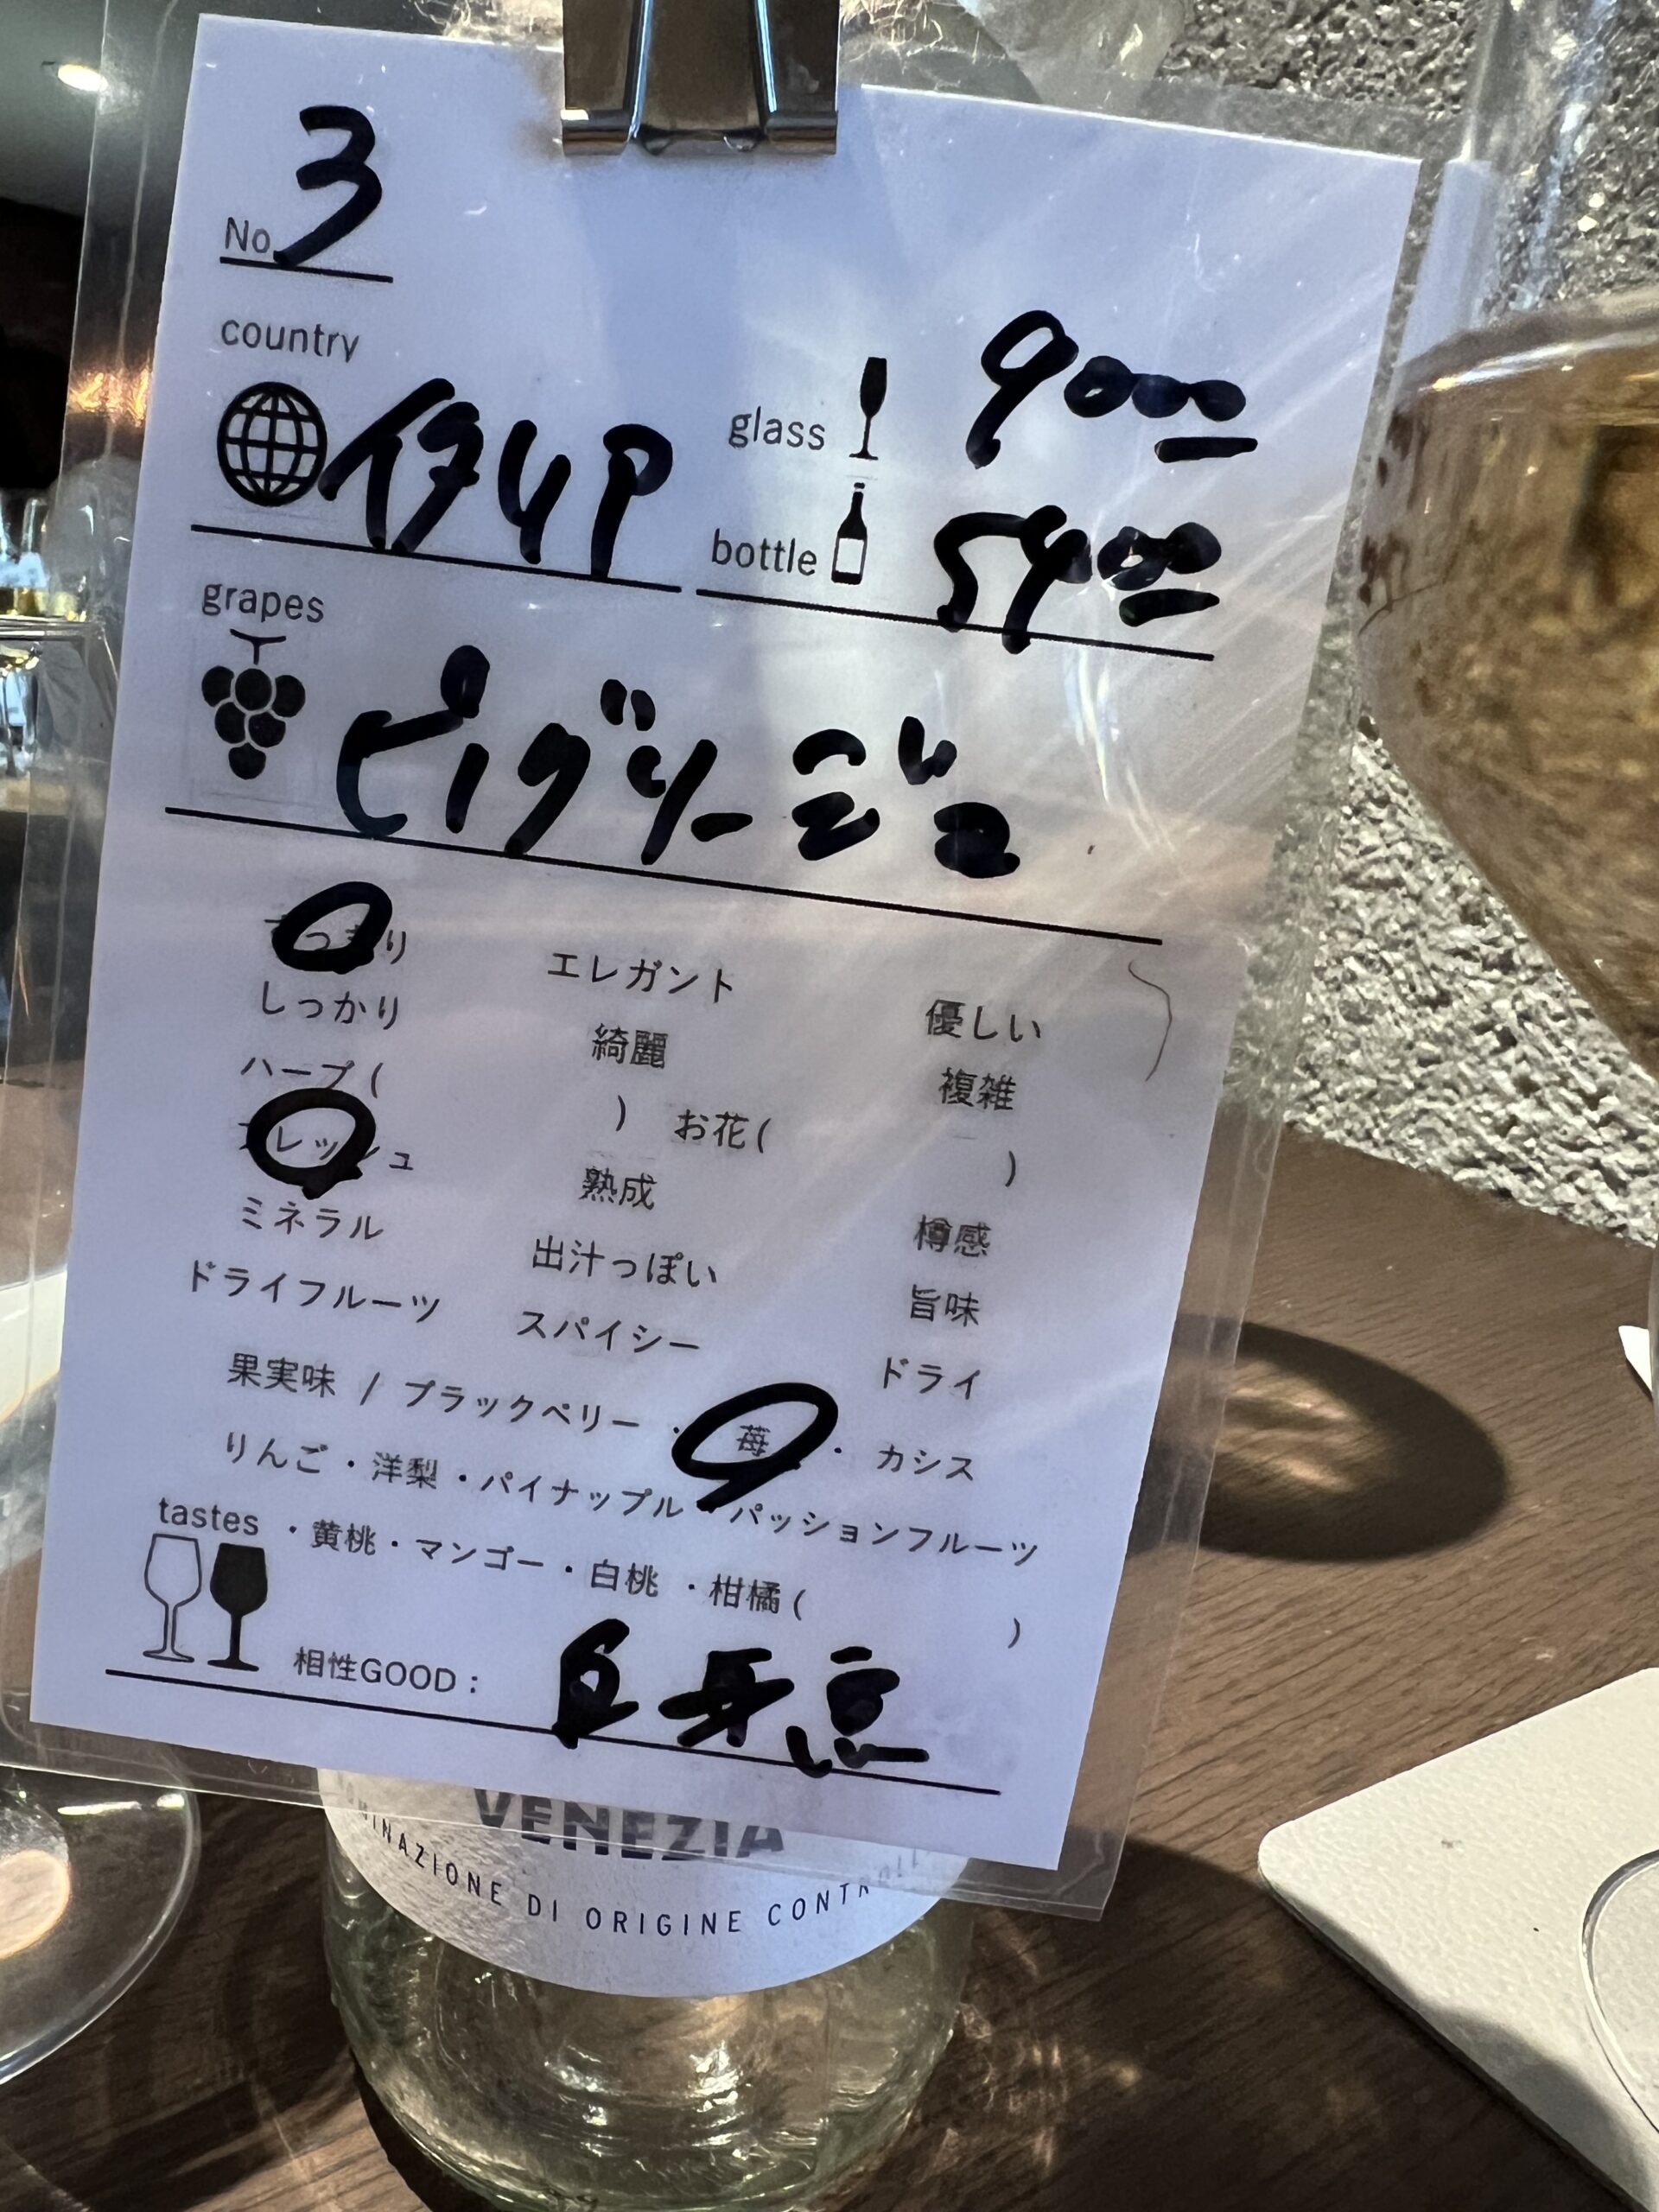 No. 3
country
イタリア
glass 900
bottle 5400
grapes
ピノグリージョ
すっきり エレガント 優しい
しっかり 綺麗 複雑
ハーブ( ) お花( )
フレッシュ 熟成 樽感
ミネラル 出汁っぽい 旨味
ドライフルーツ スパイシー ドライ
果実味 / ブラックベリー ・ 苺 ・ カシス
りんご・洋梨・パイナップル・パッションフルーツ
・黄桃・マンゴー・白桃 ・柑橘( )
tastes
相性GOOD:
VENEZIA
DI ORIGINE